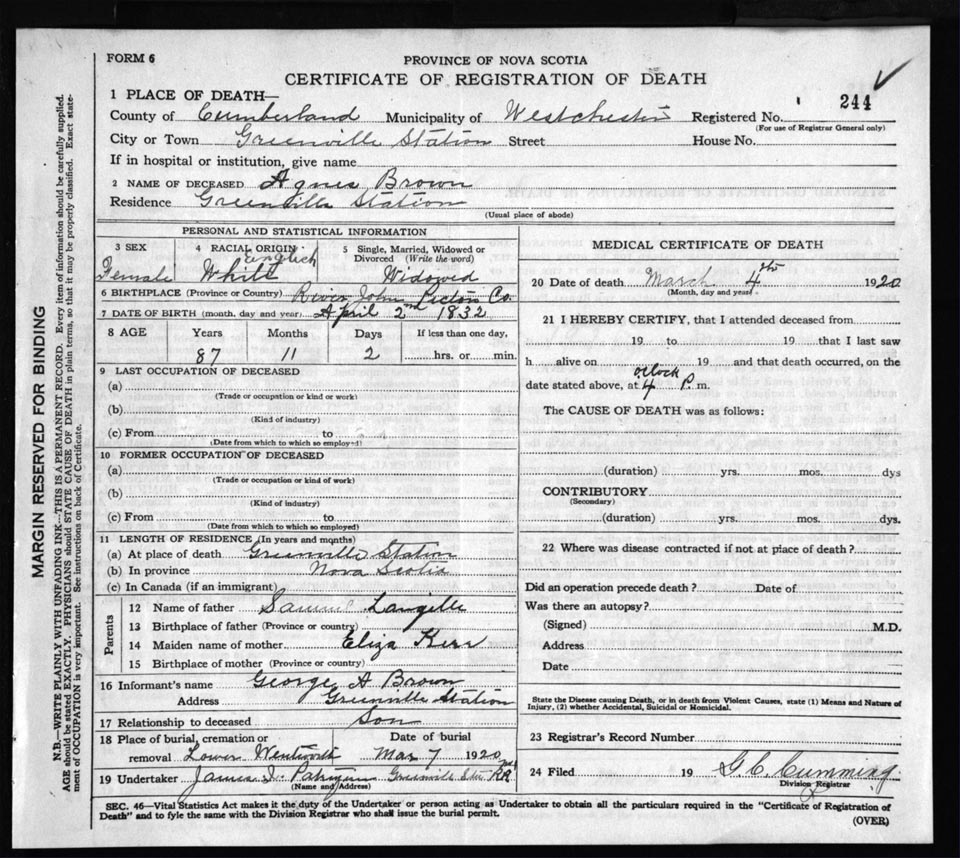 FORM 6
PROVINCE OF NOVA SCOTIA
CERTIFICATE OF REGISTRATION OF DEATH
244
1 PLACE OF DEATH—
County of Cumberland Municipality of Westchester Registered No.
(For use of Registrar General only)
City or Town Greenville Station Street House No.
If in hospital or institution, give name
2 NAME OF DECEASED Agnes Brown
Residence Greenville Station
(Usual place of abode)
PERSONAL AND STATISTICAL INFORMATION
3 SEX 4 RACIAL ORIGIN 5 Single, Married, Widowed or Divorced (Write the word)
English
Female White Widowed
6 BIRTHPLACE (Province or Country) River John Pictou Co.
7 DATE OF BIRTH (month, day and year) April 2nd 1832
8 AGE Years Months Days If less than one day,
87 11 2 hrs. or min.
9 LAST OCCUPATION OF DECEASED
(a)
(Trade or occupation or kind or work)
(b)
(Kind of industry)
(c) From to
(Date from which to which so employed)
10 FORMER OCCUPATION OF DECEASED
(a)
(Trade or occupation or kind of work)
(b)
(Kind of industry)
(c) From to
(Date from which to which so employed)
11 LENGTH OF RESIDENCE (In years and months)
(a) At place of death Greenville Station
(b) In province Nova Scotia
(c) In Canada (if an immigrant)
Parents
12 Name of father Samuel Langille
13 Birthplace of father (Province or country)
14 Maiden name of mother Eliza Kerr
15 Birthplace of mother (Province or country)
16 Informant's name George A Brown
Address Greenville Station
17 Relationship to deceased Son
18 Place of burial, cremation or removal Date of burial
Lower Wentworth Mar 7 1920
19 Undertaker James Greenville Sta
(Name and Address)
MEDICAL CERTIFICATE OF DEATH
20 Date of death March 4th 1920
(Month, day and year)
21 I HEREBY CERTIFY, that I attended deceased from
19 to 19 that I last saw
h alive on 19 and that death occurred, on the
o'clock
date stated above, at 4 P. m.
The CAUSE OF DEATH was as follows:
(duration) yrs. mos. dys
CONTRIBUTORY
(Secondary)
(duration) yrs. mos. dys.
22 Where was disease contracted if not at place of death?
Did an operation precede death? Date of
Was there an autopsy?
(Signed) M.D.
Address
Date
State the Disease causing Death, or in death from Violent Causes, state (1) Means and Nature of
Injury, (2) whether Accidental, Suicidal or Homicidal.
23 Registrar's Record Number
24 Filed 19 G. C. Cumming.
Division Registrar
SEC. 46—Vital Statistics Act makes it the duty of the Undertaker or person acting as Undertaker to obtain all the particulars required in the "Certificate of Registration of
Death" and to fyle the same with the Division Registrar who shall issue the burial permit.
(OVER)
MARGIN RESERVED FOR BINDING
N.B.—WRITE PLAINLY WITH UNFADING INK—THIS IS A PERMANENT RECORD. Every item of information should be carefully supplied.
AGE should be stated EXACTLY. PHYSICIANS should STATE CAUSE OF DEATH in plain terms, so that it may be properly classified. Exact state-
ment of OCCUPATION is very important. See instructions on back of Certificate.